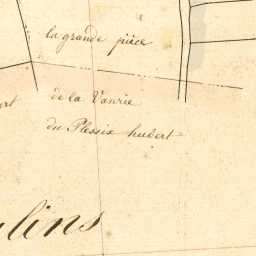 la grande pièce
de la Vanrie
du Plessix hubert
lins